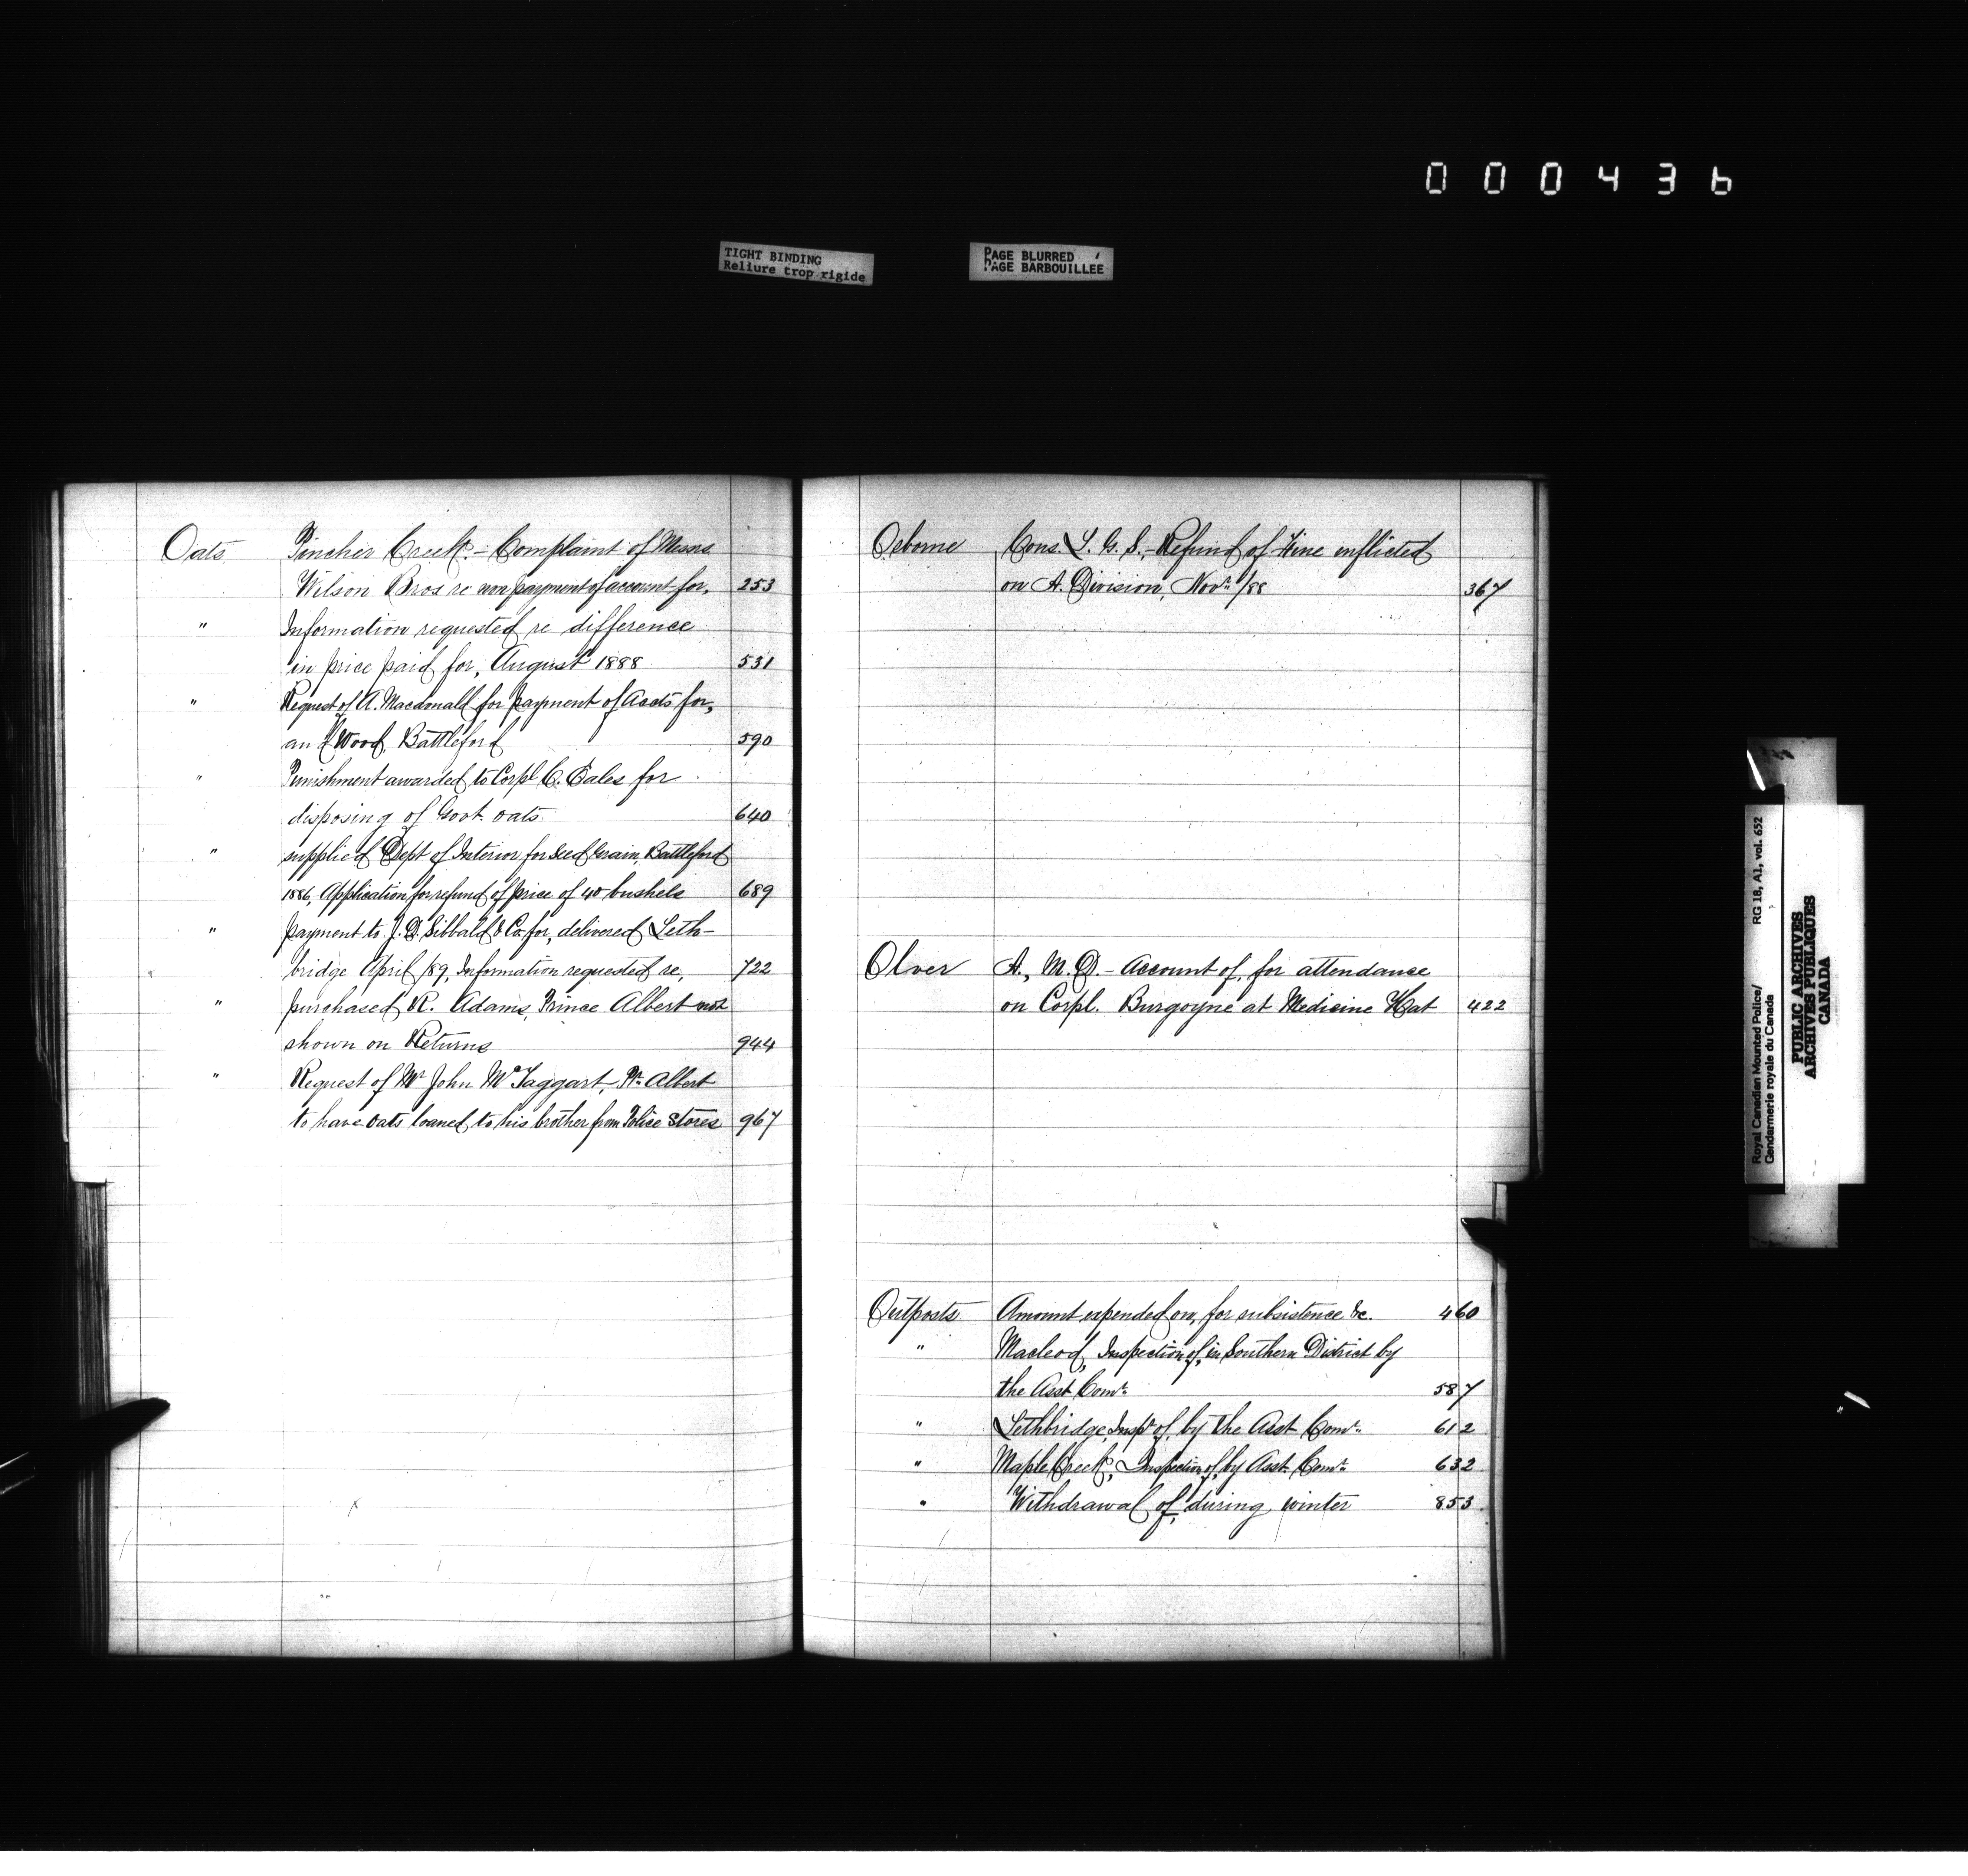 000436
TIGHT BINDING
Reliure trop rigide
PAGE BLURRED
PAGE BARBOUILLEE
Oats Pincher Creek. - Complaint of Messrs
Wilson Bros re non payment of account for, 253
" Information requested re difference
in price paid for, August 1888 531
" Request of A. Macdonald for payment of Accts for,
and Wood, Battleford 590
" Punishment awarded to Corpl C. Eales for
disposing of Govt. oats 640
" supplied Dept of Interior for Seed Grain, Battleford
1886, Application for refund of price of 40 bushels 689
" payment to J. D. Sibbald & Co. for, delivered Leth-
bridge April /89, Information requested re, 722
" purchased R. Adams, Prince Albert not
shown on Returns 944
" Request of Mr John McTaggart, Pr. Albert
to have oats loaned to his brother from Police Stores 967
Osborne Cons. L. G. S., - Refund of Fine inflicted
on A. Division, Novr /88 367
Olver A., M.D. - Account of, for attendance
on Corpl. Burgoyne at Medicine Hat 422
Outposts Amount expended on, for subsistence &c. 460
" Macleod, Inspection of, in Southern District by
the Asst Comr. 587
" Lethbridge, Inspn of, by the Asst Comr. 612
" Maple Creek, Inspection of, by Asst. Comr. 632
" Withdrawal of, during winter 853
Royal Canadian Mounted Police/ RG 18, A1, vol. 652
Gendarmerie royale du Canada
PUBLIC ARCHIVES
ARCHIVES PUBLIQUES
CANADA